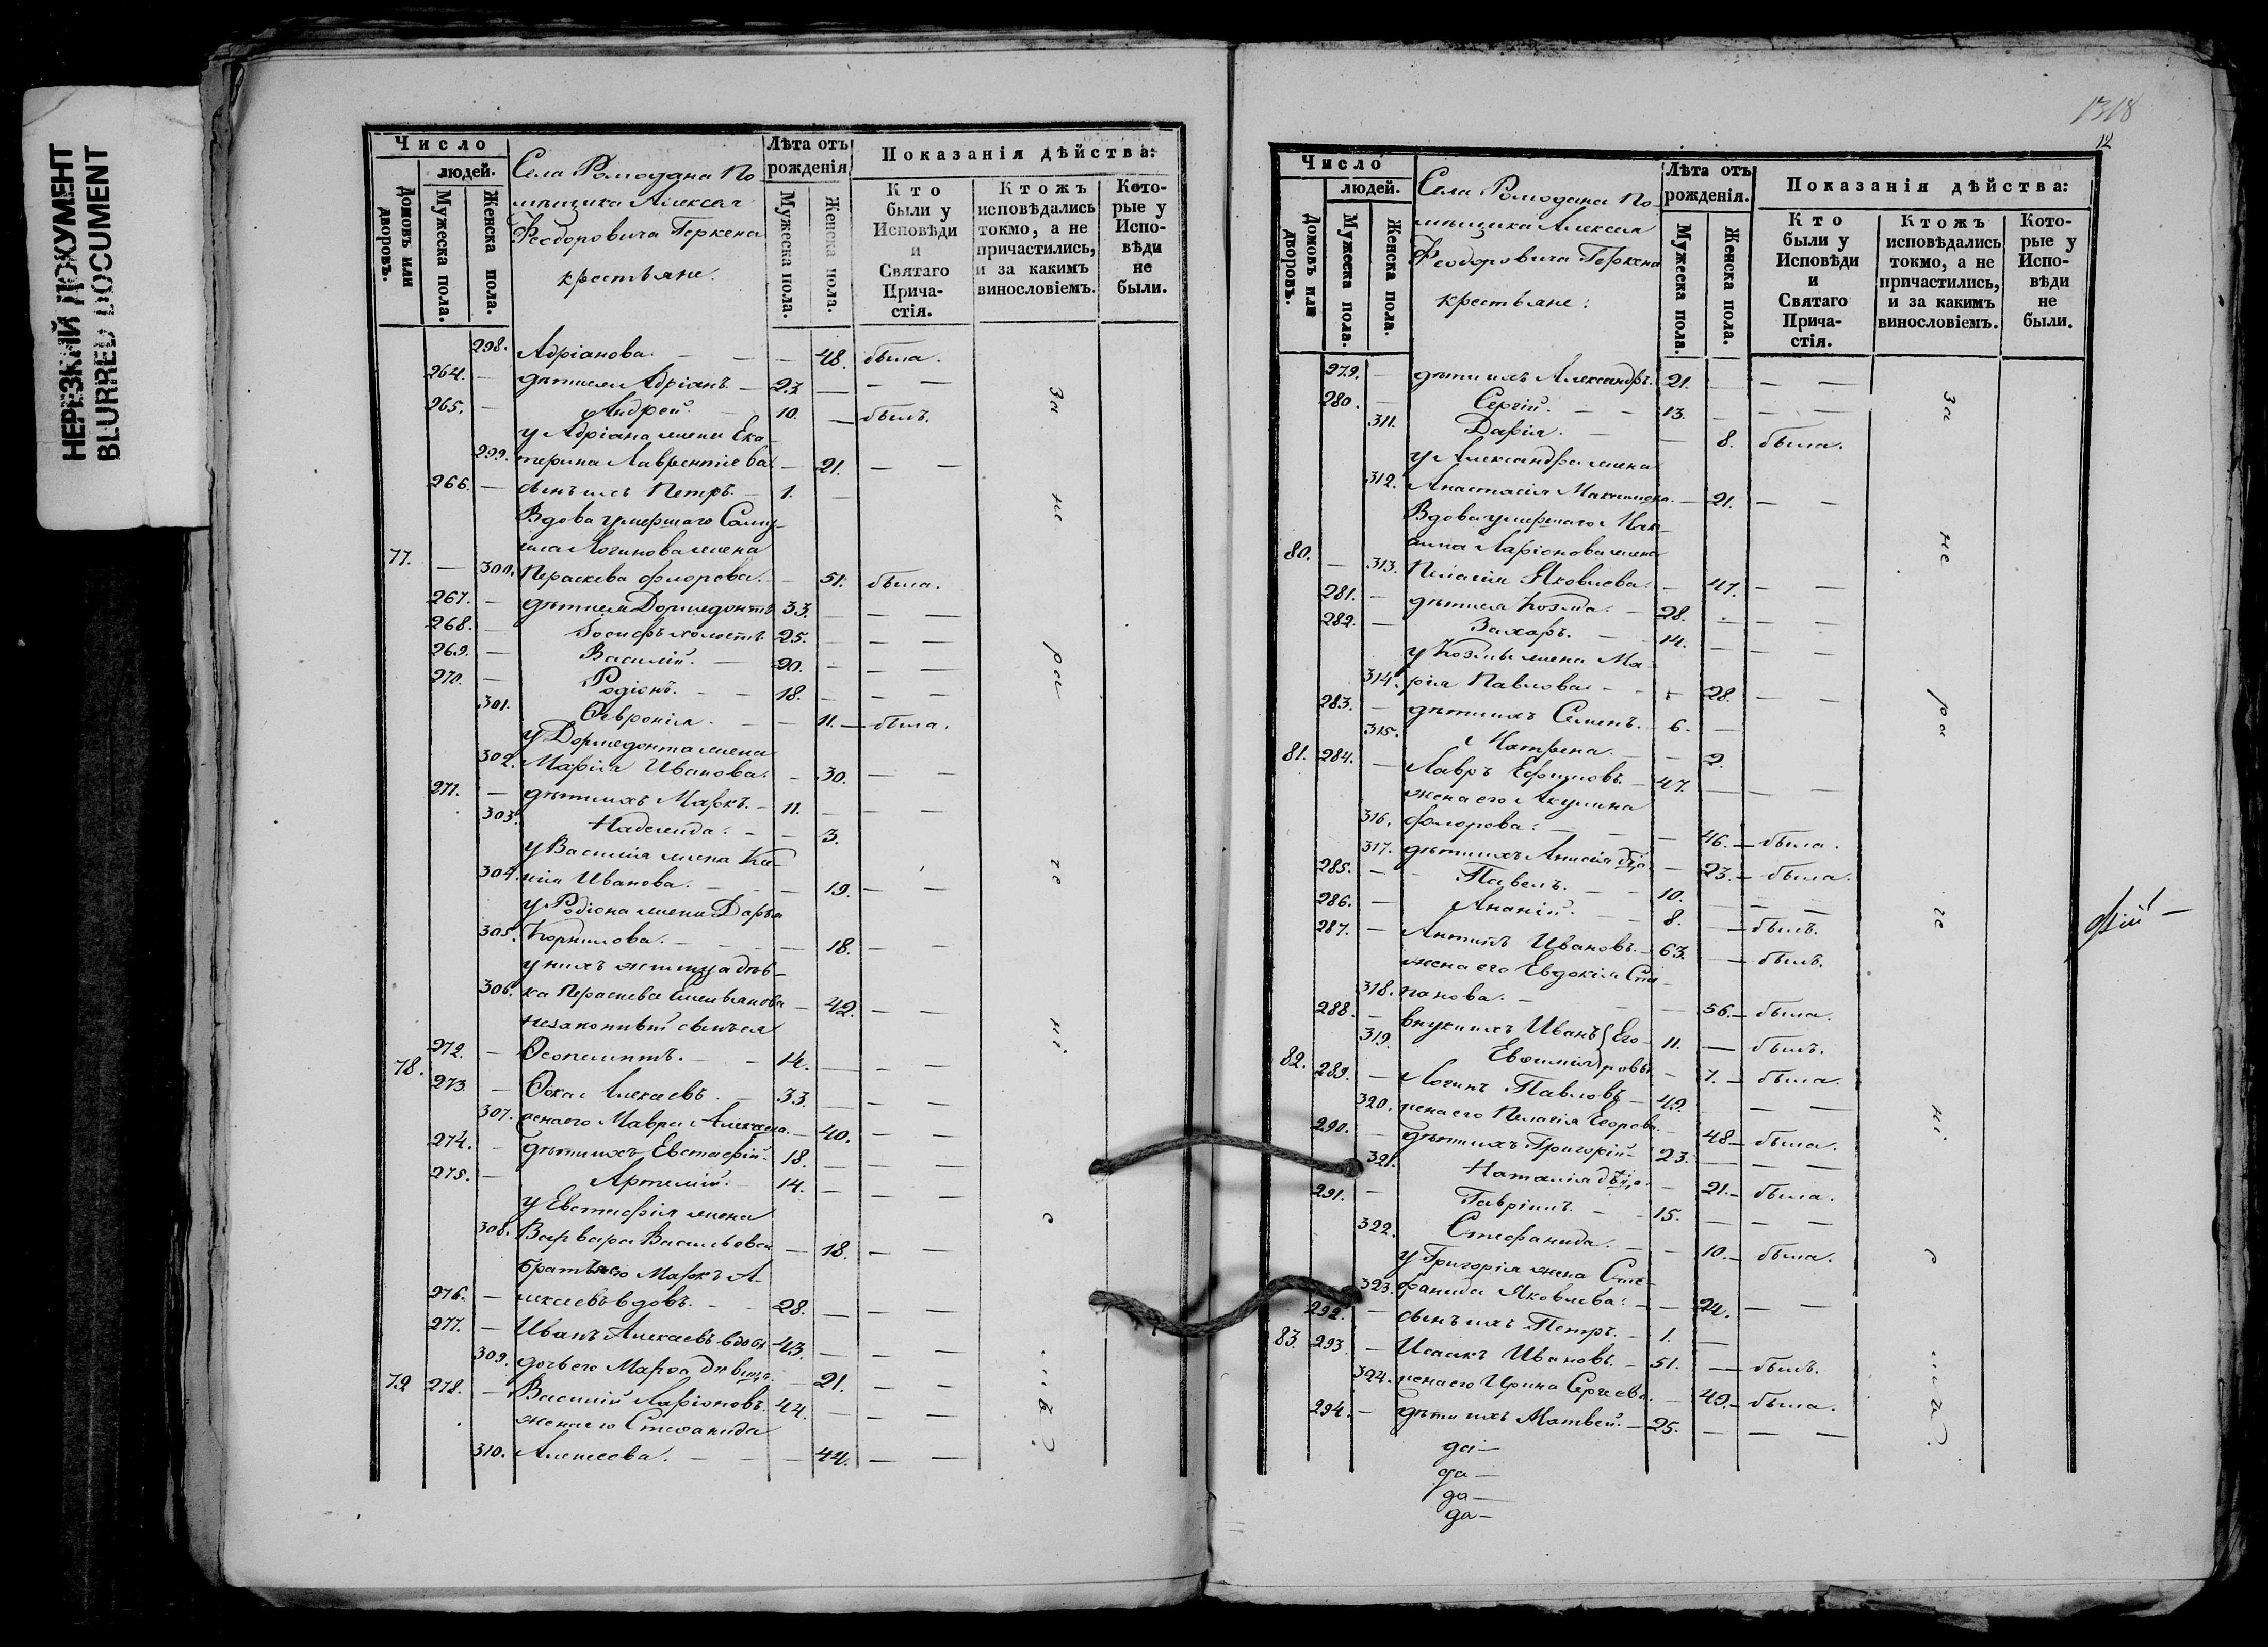 НЕРЕЗКИЙ ДОКУМЕНТ
BLURRED DOCUMENT
Число
людей.
Домовъ или дворовъ.
Мужеска пола.
Женска пола.
Села Ромодана По
мѣщика Алексея
Ѳеодоровича Геркена
крестьяне.
Лѣта отъ рожденія
Мужеска пола.
Женска пола.
Показанія дѣйства:
Кто были у Исповѣди и Святаго Прича-стія.
Ктожъ исповѣдались токмо, а не причастились, и за какимъ винословіемъ.
Кото-рые у Испо-вѣди не были.
298. Адріанова. — — — 48. была.
264. — дѣти ея Адріанъ — 23 — — —
265. — Андрей. 10. — былъ.
у Адріана жена Ека
299. терина Лаврентіева — 21. — —
266. — сынъ ихъ Петръ. — 1. —
Вдова умершаго Саму-
ила Логинова жена
77. — 300. Параскева Флорова. — 51. была.
267. — дѣти ея Дормедонтъ 33. — — —
268. — Іосифъ холостъ. 25. — — —
269. — Василій. — 20. — — —
270. — Родіонъ. — — 18. — — —
301. Ѳеvронія. — — 11. — была.
у Дормедонта жена
302. Марія Иванова. — 30. — —
271. — дѣти ихъ Маркъ. — 11. — — —
303. Надежда. — — 3.
у Василія жена Ксе
304. нія Иванова. — — 19. — —
у Родіона жена Дарья
305. Корнилова. — — — 18. — —
у нихъ жилица дѣв-
306. ка Параскева Емельянова — 42. — —
незаконный сынъ ея
272. — Ѳеопемптъ. — — 14. — — —
78. 273. — Ѳока Алексѣевъ. — 33. — — —
307. жена его Мавра Алексѣева. — 40. — —
274. — дѣти ихъ Евстафій. 18. — — —
275. — Артемій. 14. — — —
у Евстафія жена
308. Варвара Васильева — 18. — —
братъ его Маркъ А-
276. — лексѣевъ вдовъ. — 28. — — —
277. — Иванъ Алексѣевъ вдовъ 43. — — —
309. дочь его Марѳа дѣвица. — 21. — —
79 278. — Василій Ларіоновъ. 44. — — —
жена его Стефанида
310. Алексѣева. — — — 44. — —
За не ра че ні е мъ.
1318
12
Число
людей.
Домовъ или дворовъ.
Мужеска пола.
Женска пола.
Села Ромодана По-
мѣщика Алексея
Ѳеодоровича Геркена
крестьяне:
Лѣта отъ рожденія.
Мужеска пола.
Женска пола.
Показанія дѣйства:
Кто были у Исповѣди и Святаго Прича-стія.
Ктожъ исповѣдались токмо, а не причастились, и за какимъ винословіемъ.
Кото-рые у Испо-вѣди не были.
279. — дѣти ихъ Александръ. 21. — — —
280. — Сергій. — — 13. — — —
311. Дарія. — — 8. была.
у Александра жена
312. Анастасія Максимова. — 21. — —
Вдова умершаго
Ларіонова жена
80. — 313. Пелагія Яковлева. — 47. — —
281. — дѣти ея Козма. — 28. — —
282. — Захаръ. — — 14. — — —
у Козмы жена Ма-
314. рія Павлова — — 28. — —
283. — дѣти ихъ Семенъ. — 6. —
315. Матрена. — — 2.
81. 284. — Лавръ Ефимовъ. — 47. — — —
жена его Акулина
316. Флорова. — — — 46. — была.
317. дѣти ихъ Анисія дѣвица — 23. — была.
285. — Павелъ. — — 10. — — —
286. — Ананій. — — 8. — былъ.
287. — Антипъ Ивановъ. — 63. — былъ.
жена его Евдокія Сте
318. панова. — — — 56. — была.
288. — внуки ихъ Иванъ Его- 11. — былъ.
319. Евѳимія ровы — 7. — была.
82. 289. — Логинъ Павловъ — 49. — — —
320. жена его Пелагія Егорова. — 48 — была.
290. — дѣти ихъ Григорій — 23. — — —
321. Наталія дѣвица — 21. — была.
291. — Гавріилъ. — — 15. — — —
322. Стефанида. — — 10. — была.
у Григорія жена Сте-
323. фанида Яковлева. — — 24. — —
292. — сынъ ихъ Петръ. — 1. —
83. 293. — Исаакъ Ивановъ. — 51. — былъ.
324. жена его Ирина Сергѣева. — 49. — была.
294. — дѣти ихъ Матвей. — 25. — — —
да —
да —
да —
да —
За не ра че ні е мъ.